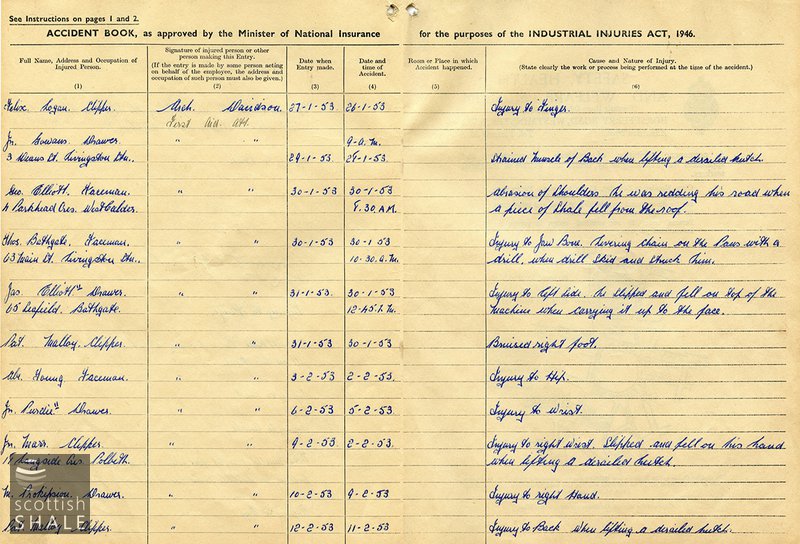 See Instructions on pages 1 and 2.
ACCIDENT BOOK, as approved by the Minister of National Insurance for the purposes of the INDUSTRIAL INJURIES ACT, 1946.
Full Name, Address and Occupation of Injured Person. (1)
Signature of injured person or other person making this Entry. (If the entry is made by some person acting on behalf of the employee, the address and occupation of such person must also be given.) (2)
Date when Entry made. (3)
Date and time of Accident. (4)
Room or Place in which Accident happened. (5)
Cause and Nature of Injury. (State clearly the work or process being performed at the time of the accident.) (6)
Felix Logan, Clipper. Arch. Davidson. 27-1-53 26-1-53 Injury to Finger.
First Aid. Att.
Jn. Gowans, Drawer. " " 9-a.m.
3 Deans Ct. Livingston Stn. 29-1-53. 28-1-53. Strained Muscle of Back when lifting a derailed hutch.
Geo. Elliott, Faceman. " " 30-1-53 30-1-53 abrasion of Shoulders. he was redding his road when
4 Parkhead Cres. West Calder. 8.30. A.M. a piece of Shale fell from the roof.
Thos. Bathgate, Faceman. " " 30-1-53 30-1-53 Injury to Jaw Bone. chain on the with a
63 Main St. Livingston Stn. 10-30.a.m. drill, when drill skid and struck him.
Jas. Elliott " Drawer " " 31-1-53. 30-1-53 Injury to left side. he slipped and fell on top of the
65 Leafield, Bathgate. 12-45.P.M. machine when carrying it up to the face.
Pat. Malloy, Clipper. " " 31-1-53 30-1-53 Bruised right foot.
Young, Faceman. " " 3-2-53 2-2-53. Injury to Hip.
Jn. Purdie " Drawer. " " 6-2-53 5-2-53 Injury to wrist.
Jn. Marr, Clipper. " " 9-2-53 2-2-53. Injury to right wrist. Slipped and fell on his hand
Langside Cres. Polbeth. when lifting a derailed hutch.
M. Prokipson, Drawer. " " 10-2-53 9-2-53 Injury to right Hand.
Pat Malloy, Clipper " " 12-2-53 11-2-53 Injury to Back when lifting a derailed hutch.
scottish
SHALE